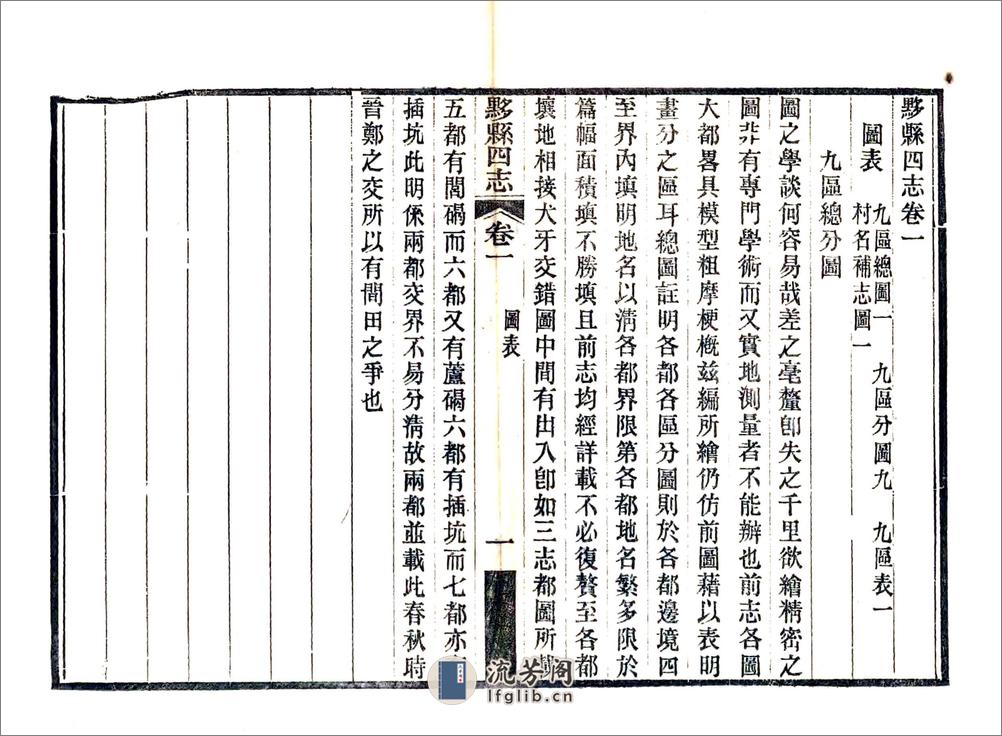 黟縣四志卷一
圖表 九區總圖一 九區分圖九 九區表一
村名補志圖一
九區總分圖
圖之學談何容易哉差之毫釐卽失之千里欲繪精密之
圖非有專門學術而又實地測量者不能辦也前志各圖
大都畧具模型粗摩梗概茲編所繪仍仿前圖藉以表明
畫分之區耳總圖註明各都各區分圖則於各都邊境四
至界內填明地名以淸各都界限第各都地名繁多限於
篇幅面積填不勝填且前志均經詳載不必復贅至各都
壤地相接犬牙交錯圖中間有出入卽如三志都圖所
黟縣四志 卷一 圖表 一
五都有閭碣而六都又有蘆碣六都有插坑而七都亦
插坑此明係兩都交界不易分淸故兩都並載此春秋時
晉鄭之交所以有閒田之爭也
流芳阁
lfglib.cn